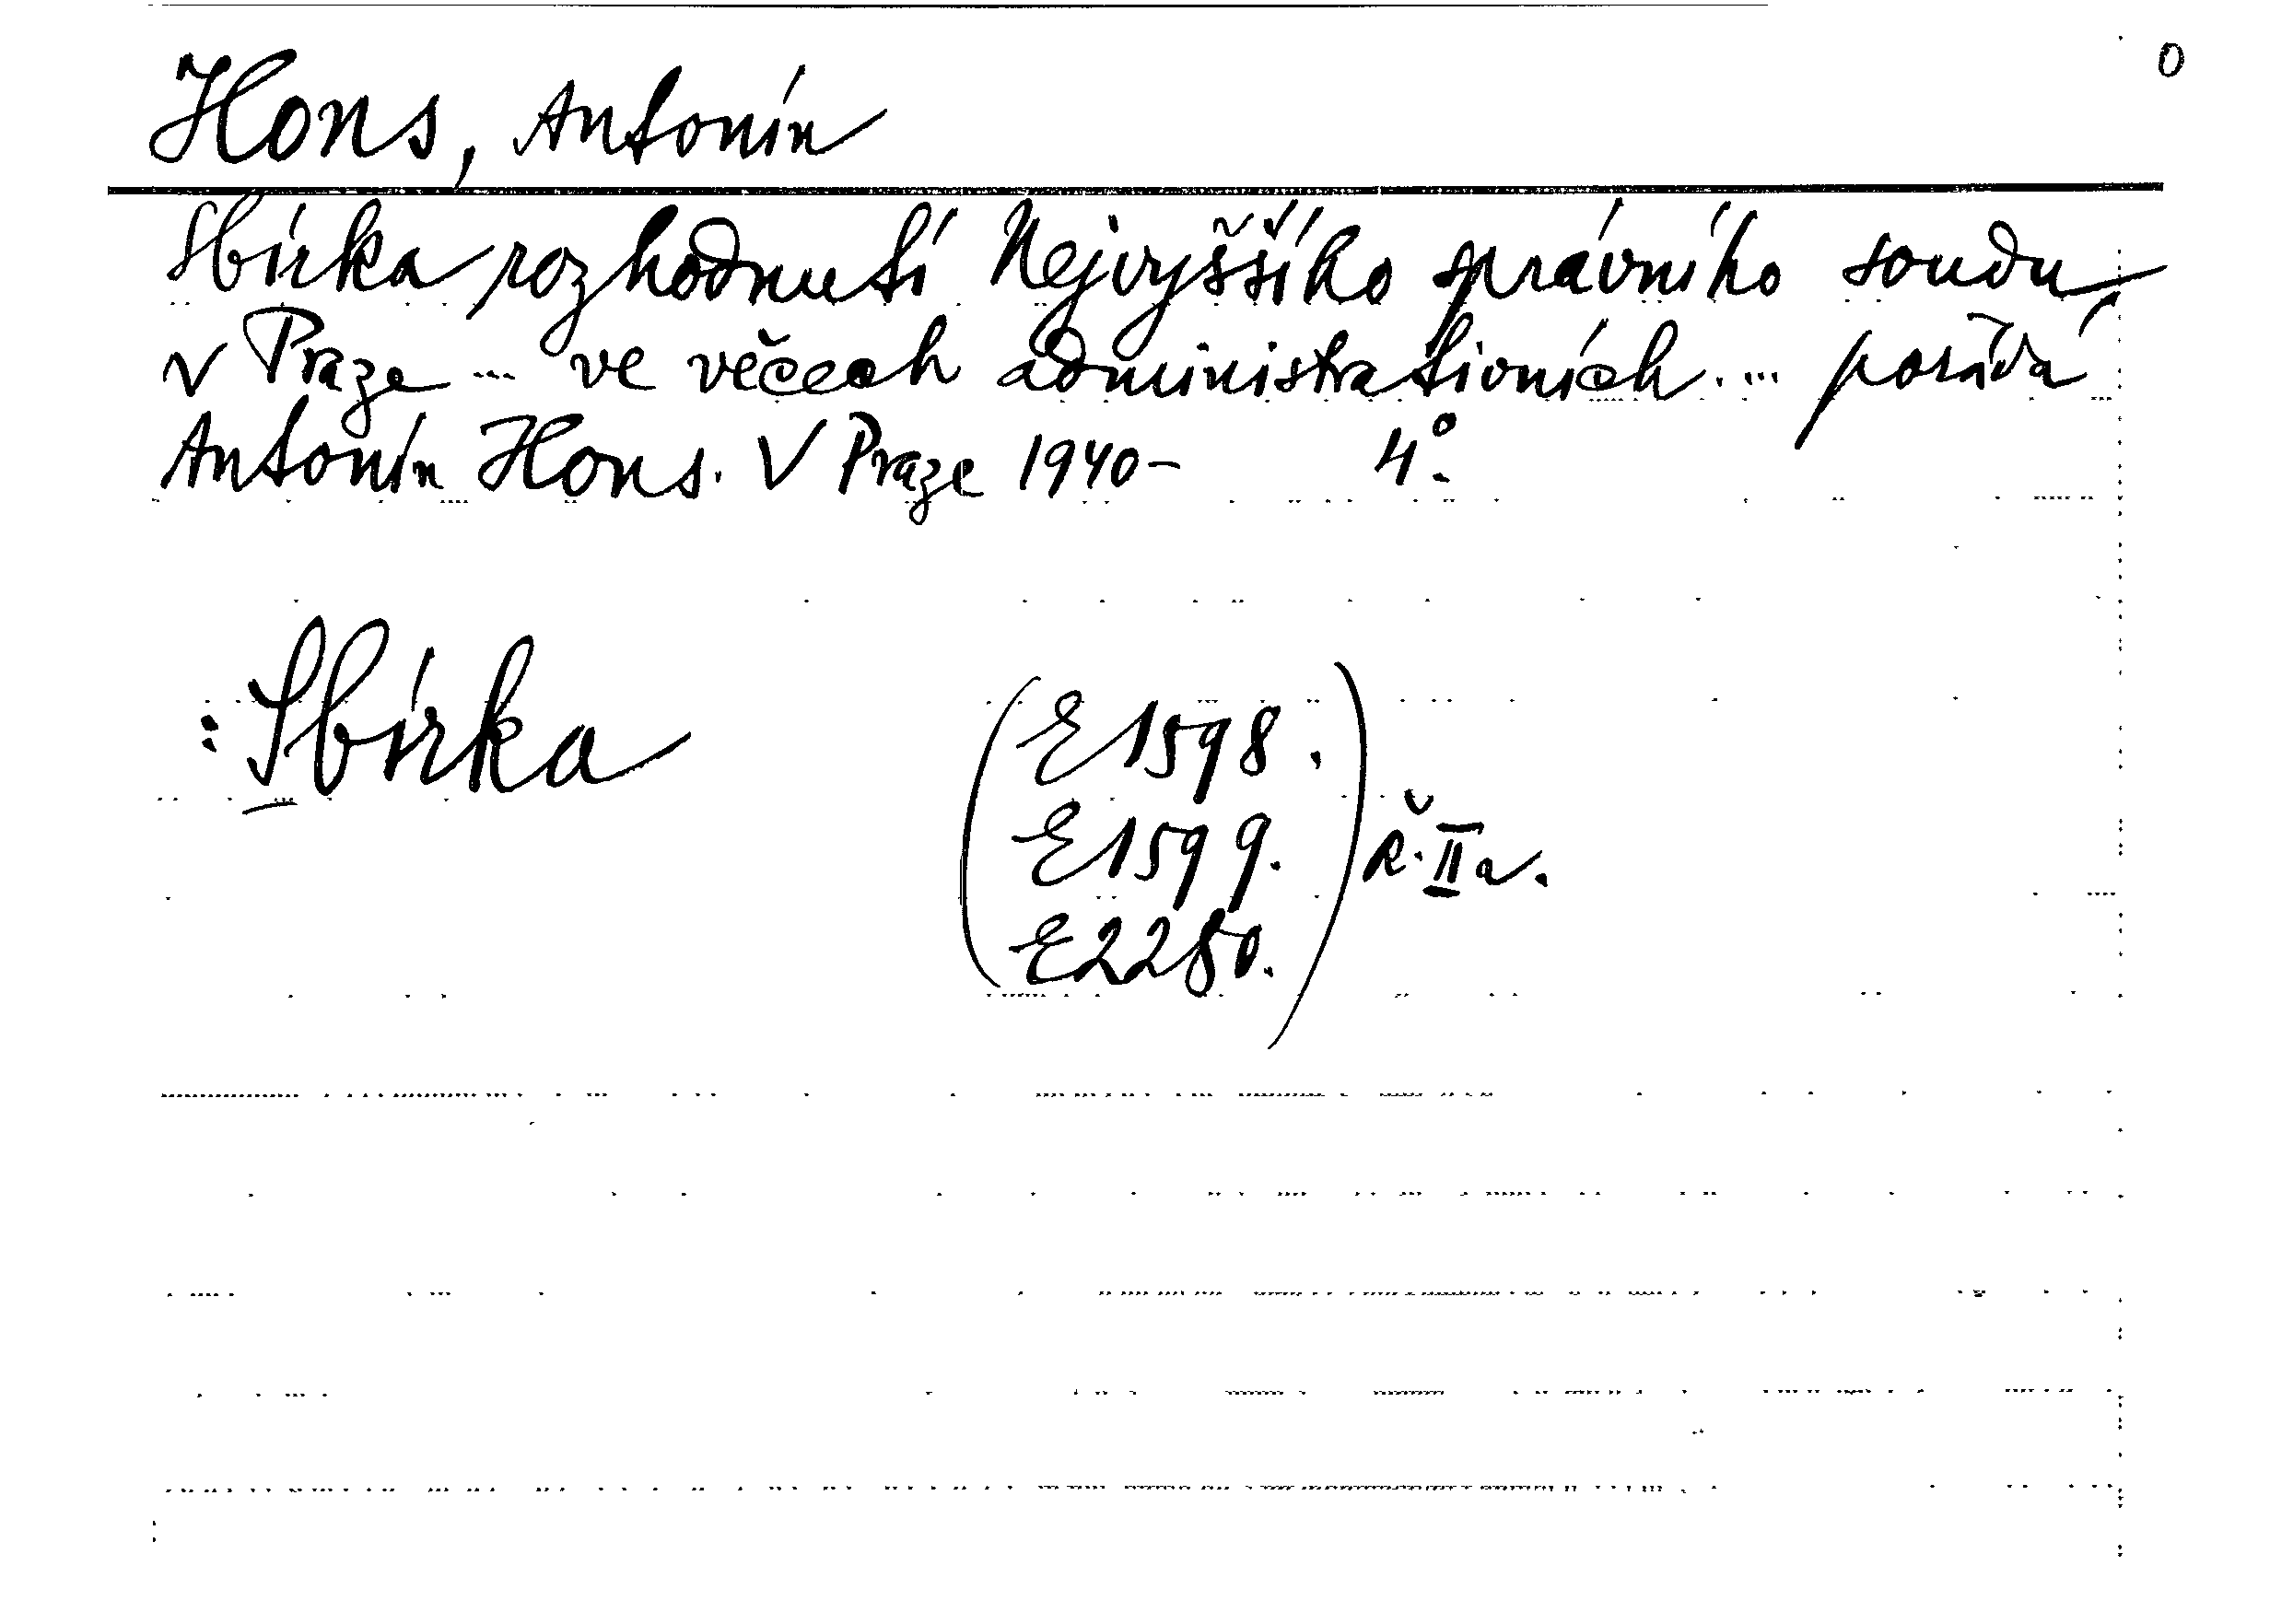 0
Hons, Antonín
Sbírka rozhodnutí Nejvyššího správního soudu
v Praze ... ve věcech administrativních ... pořádá
Antonín Hons. V Praze 1940- 4°.
: Sbírka
(E 1598.
E 1599.
E 2280.) Ř. II a.